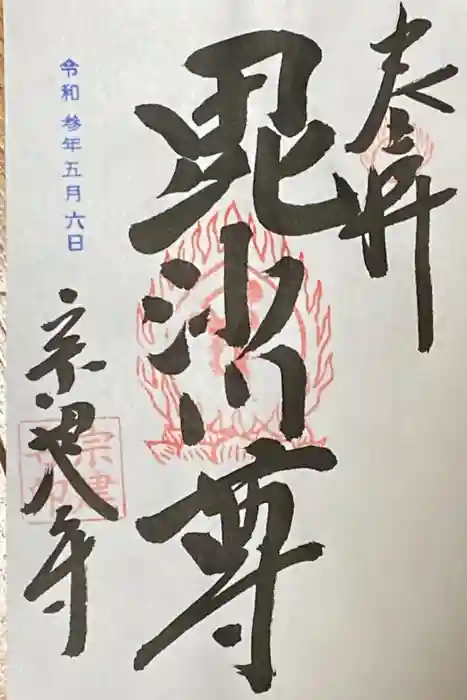 奉拝
毘沙門尊
令和参年五月六日
宗建寺